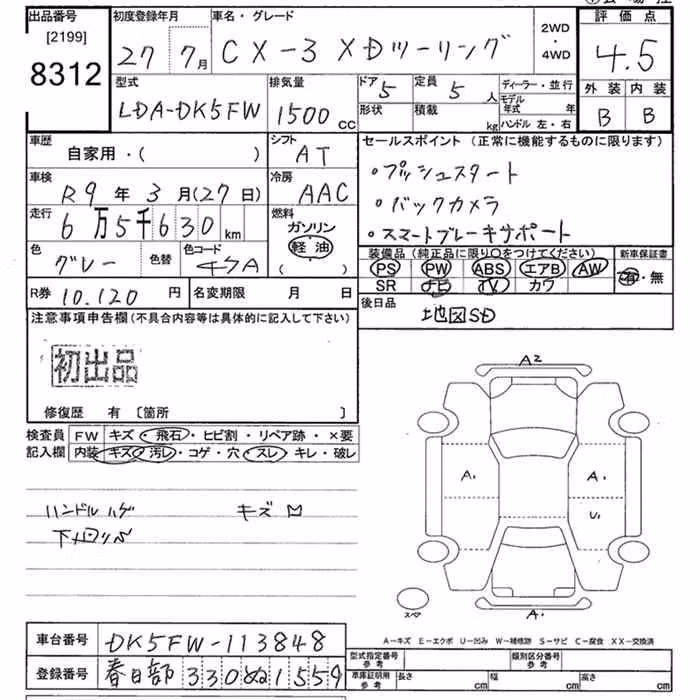 出品番号 初度登録年月 車名・グレード 評価点
[2199]
8312
27 7月 CX-3 XDツーリング 2WD・4WD 4.5
型式 排気量 ドア 5 定員 5人 ディーラー・並行 外装 内装
LDA-DK5FW 1500cc 形状 積載 kg モデル年式 年 B B
ハンドル 左・右
車歴 シフト セールスポイント(正常に機能するものに限ります)
自家用・( ) AT ・プッシュスタート
車検 冷房
R9年3月(27日) AAC ・バックカメラ
走行 燃料
6万5千630km ガソリン ・スマートブレーキサポート
軽油
( )
色 色替 色コード 装備品(純正品に限り○をつけてください) 新車保証書
グレー PS PW ABS エアB AW 有・無
SR ナビ TV カワ
R券 10.120円 名変期限 月 日 後日品
地図SD
注意事項申告欄(不具合内容等は具体的に記入して下さい)
初出品
修復歴 有 〔箇所 〕
検査員 FW キズ・飛石・ヒビ割・リペア跡・×要
記入欄 内装 キズ・汚レ・コゲ・穴・スレ・キレ・破レ
A2
A1 A1
U1
ハンドルハゲ キズ
A1
A-キズ E-エクボ U-凹み W-補修跡 S-サビ C-腐食 XX-交換済
車台番号 DK5FW-113848 型式指定番号 参考 類別区分番号 参考
登録番号 春日部 330 ぬ 1559 車庫証明用 参考 長さ cm 幅 cm 高さ cm